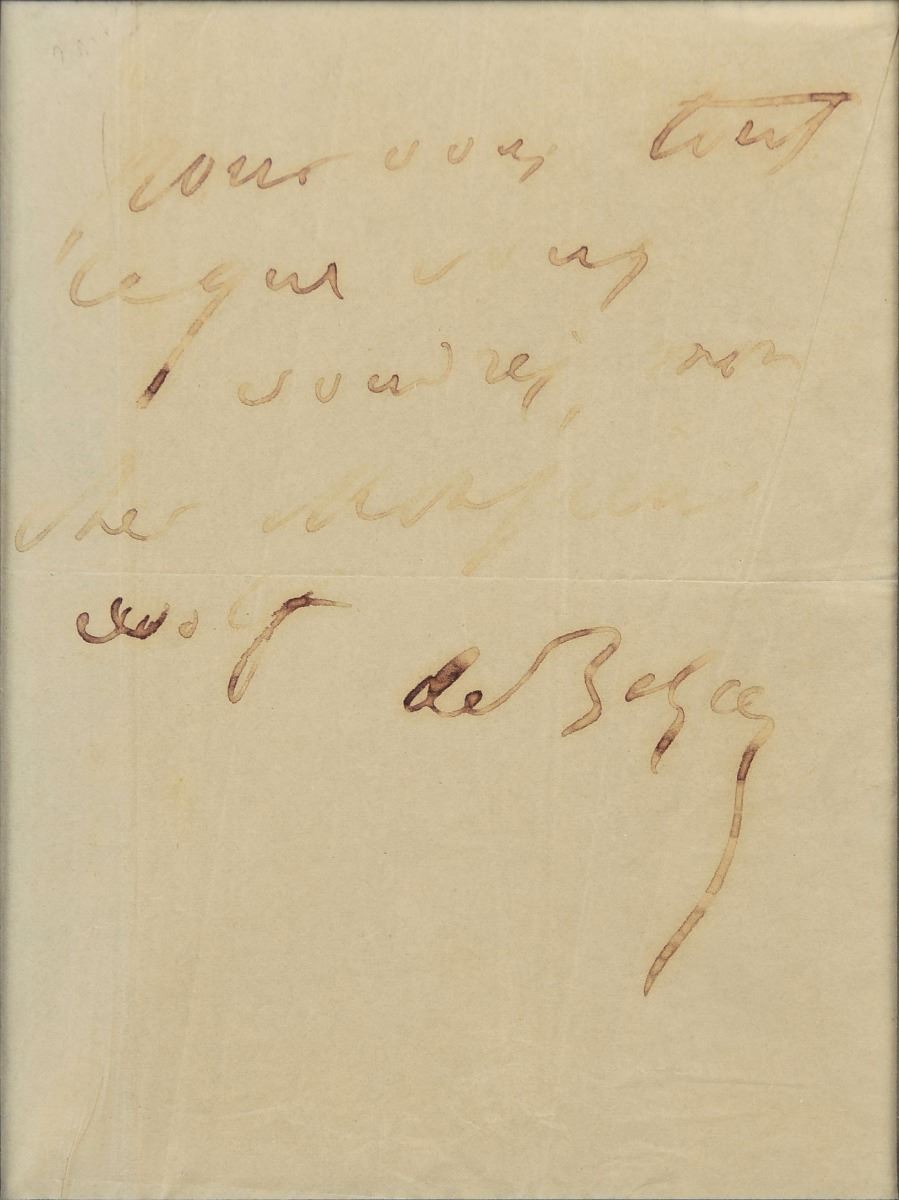 Pour vous tout
ce que vous
voudrez, mon
cher Monsieur
de Balzac